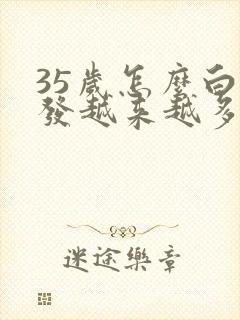 35歲怎麼白
發越來越多
迷途樂章